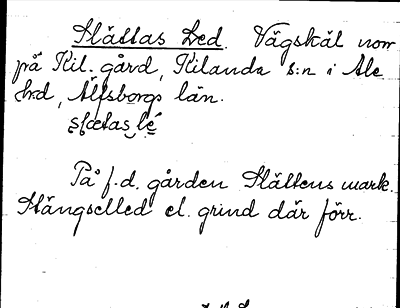 Slättas Led. Vägskäl norr
på Kil. gård, Kilanda s:n i Ale
hrd, Älfsborgs län.
På f.d. gården Slättens mark.
Stängselled el. grind där förr.